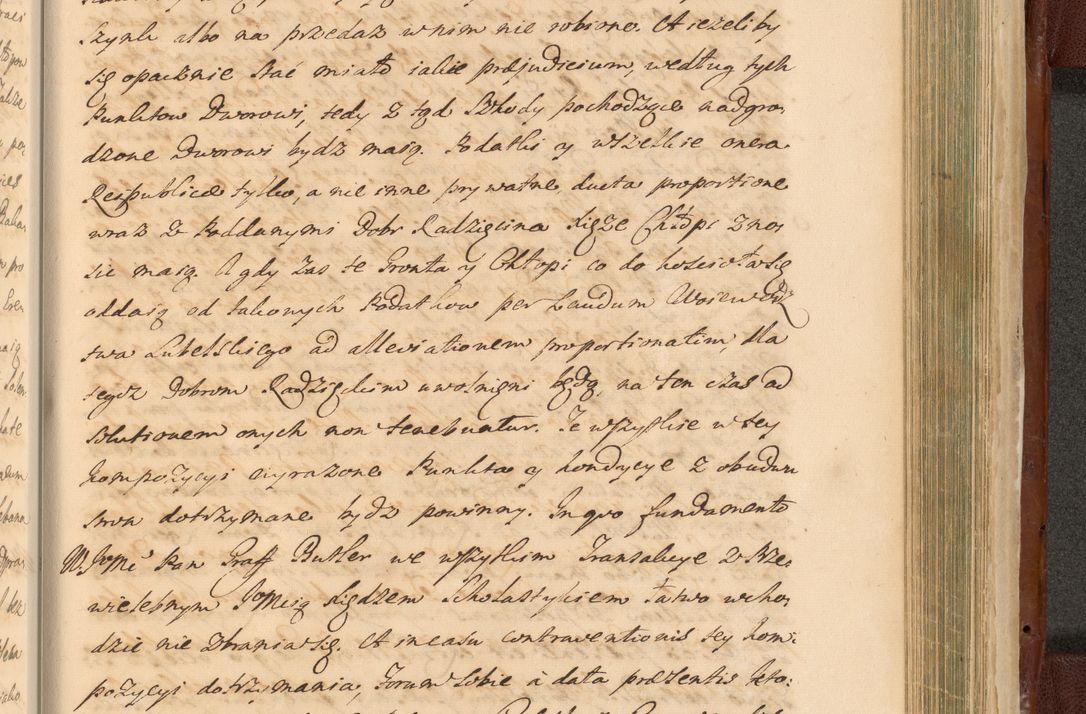 Szynk albo na przedaz w nim nie robiono. A iezeli by
się opacznie stać miało iakie præjudicium, według tych
Punktow Dworowi, tedy z tąd Szkody pochodzące nadgro,
dzone Dworowi bydz maią. Podatki y wszelkie onera
Reipublicæ tylko, a nie inne prywatne, ducta proportione
wraz ze Poddanymi Dobr Radzięcina Xięże Chłopi zno,
sić maią. A gdy zas te Gronta y Chłopi co do koscioła się
oddaią od takowych Podatkow per Laudum Woiewodz
twa Lubelskiego ad alleviationem proportionatim, dla
tegoz Dobrom Radzięckim uwolnieni będą, na ten czas ad
Solutionem onych non tenebuntur. Te wszytkie w tey
Kompozycyi wyrazone Punkta y kondycye z obudwu
stron dotrzymane bydz powinny. In quo fundamento
W. JoMć Pan Graff Butler we wszytkim Tranzakcye z Prze,
wielebnym JoMcią Xiędzem Scholastykiem łatwo wcho,
dzić nie zbrania się. A in casu contraventionis tey kom:
pozycyi dotrzymania, Forum sobie a data præzentis kto: